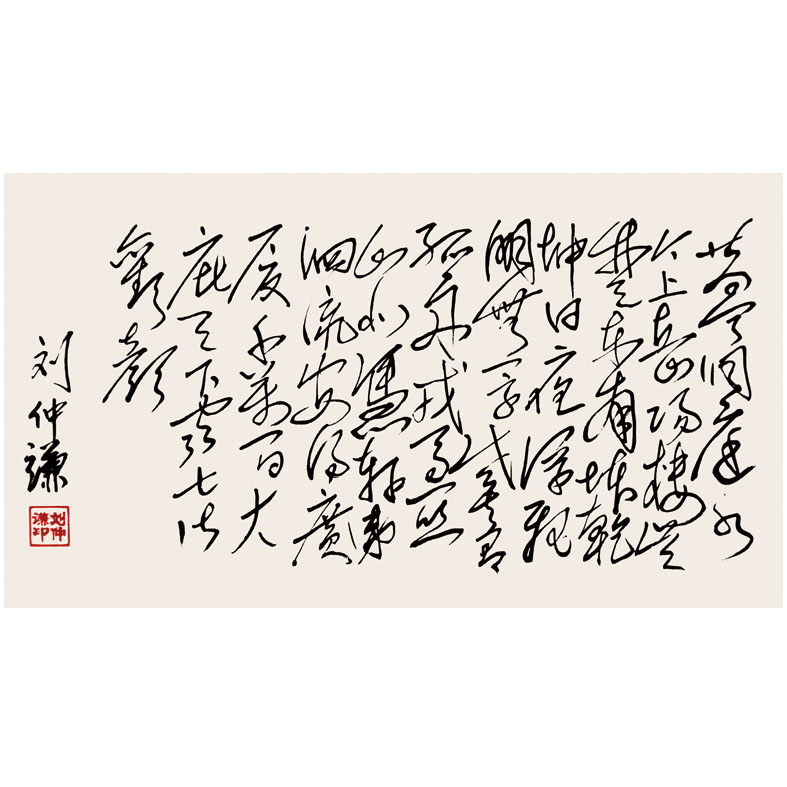 昔闻洞庭水
今上岳阳楼吴
楚东南坼乾
坤日夜浮親
朋無一字老病有
孤舟戎马關
山北憑軒涕
泗流安得廣
厦千萬间大
庇天下寒士俱
歡顔
刘仲謙
刘仲謙印